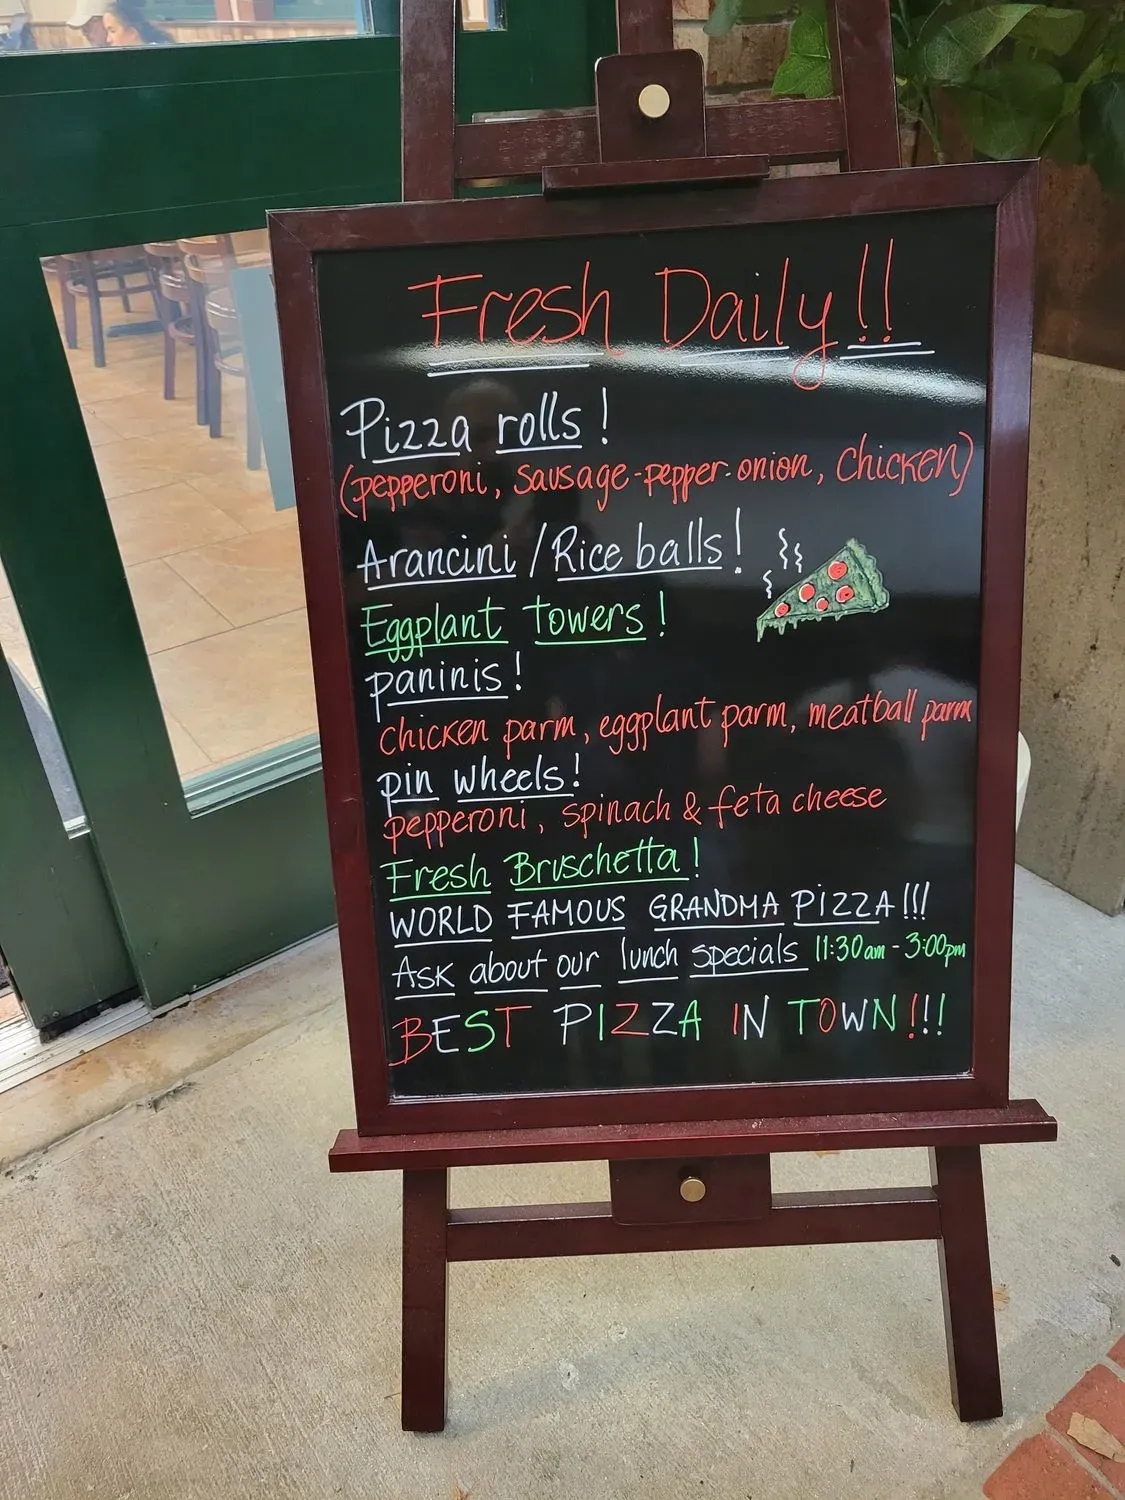 Fresh Daily!!
Pizza rolls!
(pepperoni, sausage-pepper-onion, chicken)
Arancini / Rice balls!
Eggplant towers!
paninis!
chicken parm, eggplant parm, meatball parm
pin wheels!
pepperoni, spinach & feta cheese
Fresh Bruschetta!
WORLD FAMOUS GRANDMA PIZZA!!!
Ask about our lunch specials 11:30am - 3:00pm
BEST PIZZA IN TOWN!!!